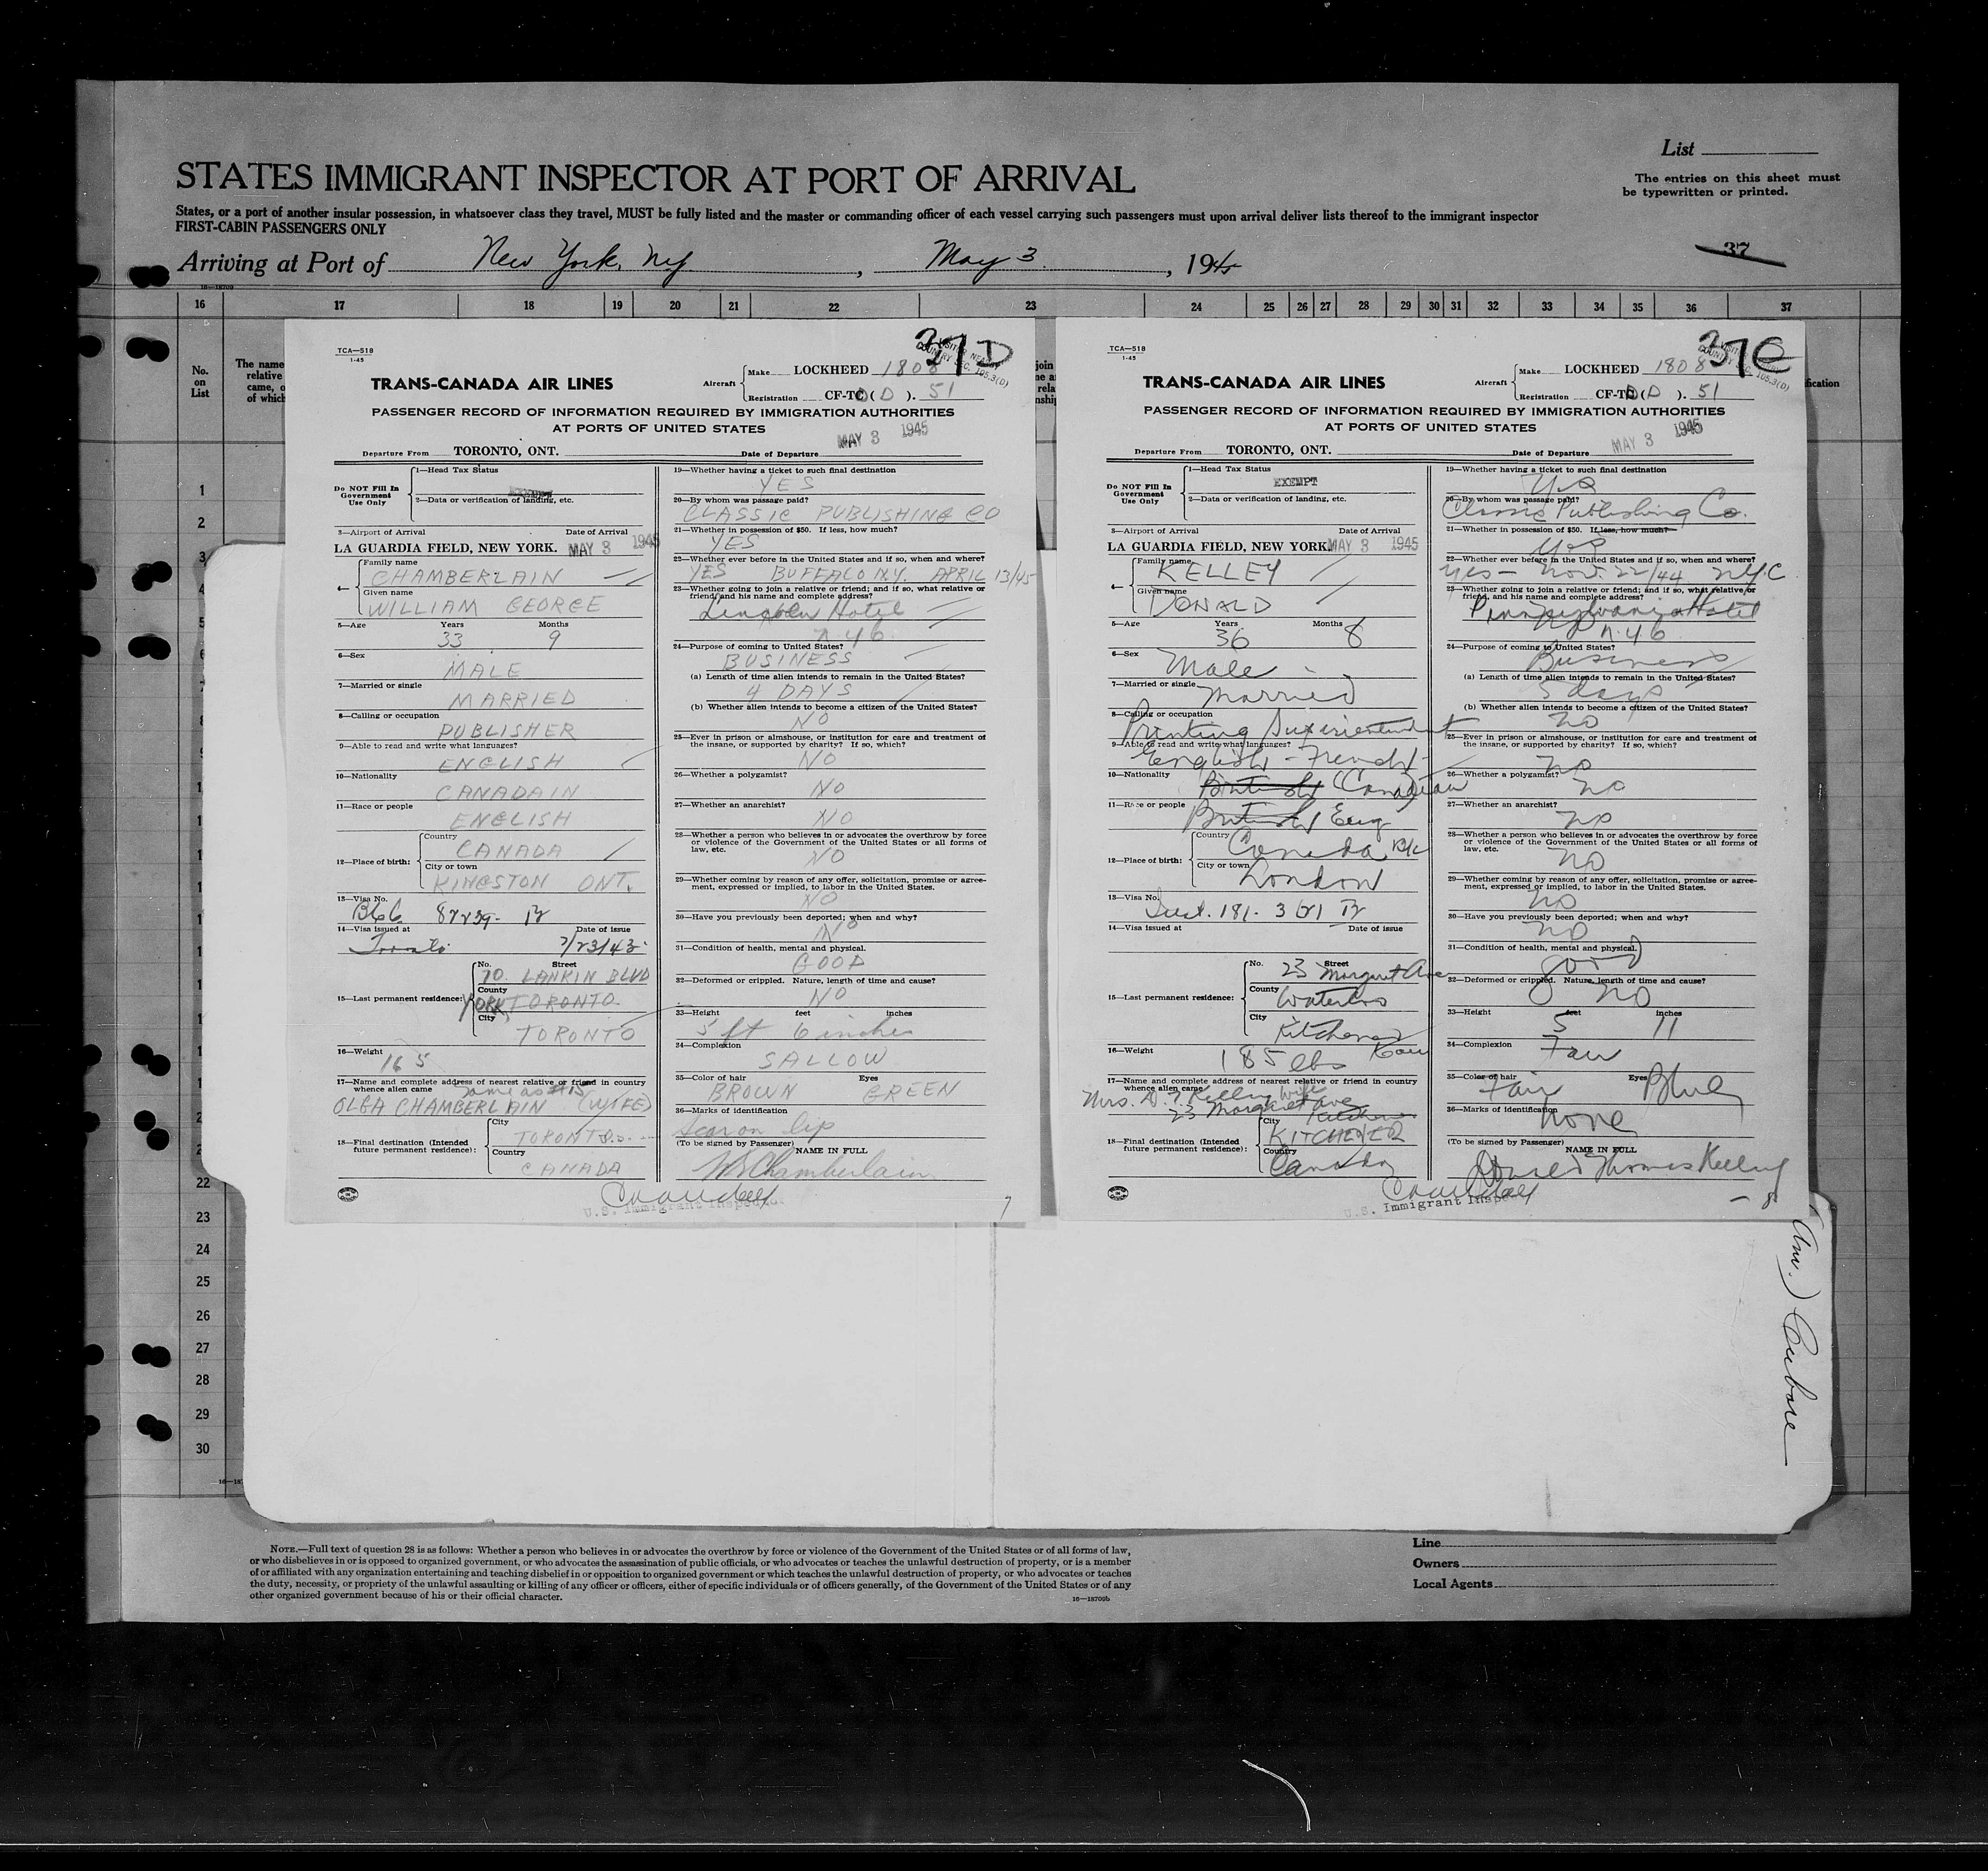 List
STATES IMMIGRANT INSPECTOR AT PORT OF ARRIVAL
The entries on this sheet must
be typewritten or printed.
States, or a port of another insular possession, in whatsoever class they travel, MUST be fully listed and the master or commanding officer of each vessel carrying such passengers must upon arrival deliver lists thereof to the immigrant inspector
FIRST-CABIN PASSENGERS ONLY
37
Arriving at Port of New York, NY, May 3, 1945
16—18709
16 17 18 19 20 21 22 23 24 25 26 27 28 29 30 31 32 33 34 35 36 37
No.
on
List
The name
relative
came, o
of which
1
2
3
4
5
6
7
22
23
24
25
26
27
28
29
30
TCA—518
1-45
37D
TRANS-CANADA AIR LINES
Aircraft
Make LOCKHEED 1808
Registration CF-TC (D). 51
PASSENGER RECORD OF INFORMATION REQUIRED BY IMMIGRATION AUTHORITIES
AT PORTS OF UNITED STATES
MAY 3 1945
Departure From TORONTO, ONT. Date of Departure
Do NOT Fill In
Government
Use Only
1—Head Tax Status
EXEMPT
2—Data or verification of landing, etc.
3—Airport of Arrival Date of Arrival
LA GUARDIA FIELD, NEW YORK. MAY 3 1945
4—
Family name
CHAMBERLAIN
Given name
WILLIAM GEORGE
5—Age Years Months
33 9
6—Sex
MALE
7—Married or single
MARRIED
8—Calling or occupation
PUBLISHER
9—Able to read and write what languages?
ENGLISH
10—Nationality
CANADAIN
11—Race or people
ENGLISH
12—Place of birth:
Country
CANADA
City or town
KINGSTON ONT.
13—Visa No.
14—Visa issued at Date of issue
Toronto
15—Last permanent residence:
No. Street
70 LANKIN BLVD
County
YORK TORONTO
City
TORONTO
16—Weight
165
17—Name and complete address of nearest relative or friend in country
whence alien came same as #15
OLGA CHAMBERLAIN (WIFE)
18—Final destination (Intended
future permanent residence):
City
TORONTO
Country
CANADA
19—Whether having a ticket to such final destination
YES
20—By whom was passage paid?
CLASSIC PUBLISHING CO
21—Whether in possession of $50. If less, how much?
YES
22—Whether ever before in the United States and if so, when and where?
YES BUFFALO N.Y. APRIL 13/45
23—Whether going to join a relative or friend; and if so, what relative or
friend, and his name and complete address?
Lincoln Hotel
24—Purpose of coming to United States?
BUSINESS
(a) Length of time alien intends to remain in the United States?
4 DAYS
(b) Whether alien intends to become a citizen of the United States?
NO
25—Ever in prison or almshouse, or institution for care and treatment of
the insane, or supported by charity? If so, which?
NO
26—Whether a polygamist?
NO
27—Whether an anarchist?
NO
28—Whether a person who believes in or advocates the overthrow by force
or violence of the Government of the United States or all forms of
law, etc.
NO
29—Whether coming by reason of any offer, solicitation, promise or agree-
ment, expressed or implied, to labor in the United States.
NO
30—Have you previously been deported; when and why?
NO
31—Condition of health, mental and physical.
GOOD
32—Deformed or crippled. Nature, length of time and cause?
NO
33—Height feet inches
5 ft 6 inches
34—Complexion
SALLOW
35—Color of hair Eyes
BROWN GREEN
36—Marks of identification
Scar on lip
(To be signed by Passenger)
NAME IN FULL
WG Chamberlain
U.S. Immigrant Inspector
7
TCA—518
1-45
37E
TRANS-CANADA AIR LINES
Aircraft
Make LOCKHEED 1808
Registration CF-TC (D). 51
PASSENGER RECORD OF INFORMATION REQUIRED BY IMMIGRATION AUTHORITIES
AT PORTS OF UNITED STATES
MAY 3 1945
Departure From TORONTO, ONT. Date of Departure
Do NOT Fill In
Government
Use Only
1—Head Tax Status
EXEMPT
2—Data or verification of landing, etc.
3—Airport of Arrival Date of Arrival
LA GUARDIA FIELD, NEW YORK. MAY 3 1945
4—
Family name
KELLEY
Given name
DONALD
5—Age Years Months
36 8
6—Sex
Male
7—Married or single
Married
8—Calling or occupation
Printing Superientendent
9—Able to read and write what languages?
English - French
10—Nationality
British (Canadian
11—Race or people
British Eng
12—Place of birth:
Country
Canada
City or town
London
13—Visa No.
14—Visa issued at Date of issue
15—Last permanent residence:
No. Street
23 Margaret Ave
County
Waterloo
City
Kitchener
16—Weight
185 lbs
17—Name and complete address of nearest relative or friend in country
whence alien came
Mrs. D. T. Kelley wife
23 Margaret Ave
Kitchener
18—Final destination (Intended
future permanent residence):
City
KITCHENER
Country
Canada
19—Whether having a ticket to such final destination
yes
20—By whom was passage paid?
Classic Publishing Co.
21—Whether in possession of $50. If less, how much?
yes
22—Whether ever before in the United States and if so, when and where?
yes - Nov. 22/44 NYC
23—Whether going to join a relative or friend; and if so, what relative or
friend, and his name and complete address?
Pennsylvania Hotel
24—Purpose of coming to United States?
Business
(a) Length of time alien intends to remain in the United States?
5 days
(b) Whether alien intends to become a citizen of the United States?
no
25—Ever in prison or almshouse, or institution for care and treatment of
the insane, or supported by charity? If so, which?
no
26—Whether a polygamist?
no
27—Whether an anarchist?
no
28—Whether a person who believes in or advocates the overthrow by force
or violence of the Government of the United States or all forms of
law, etc.
no
29—Whether coming by reason of any offer, solicitation, promise or agree-
ment, expressed or implied, to labor in the United States.
no
30—Have you previously been deported; when and why?
no
31—Condition of health, mental and physical.
good
32—Deformed or crippled. Nature, length of time and cause?
no
33—Height feet inches
5 11
34—Complexion
Fair
35—Color of hair Eyes
Fair Blue
36—Marks of identification
none
(To be signed by Passenger)
NAME IN FULL
Donald Thomas Kelley
U.S. Immigrant Inspector
8
NOTE.—Full text of question 28 is as follows: Whether a person who believes in or advocates the overthrow by force or violence of the Government of the United States or of all forms of law,
or who disbelieves in or is opposed to organized government, or who advocates the assassination of public officials, or who advocates or teaches the unlawful destruction of property, or is a member
of or affiliated with any organization entertaining and teaching disbelief in or opposition to organized government or which teaches the unlawful destruction of property, or who advocates or teaches
the duty, necessity, or propriety of the unlawful assaulting or killing of any officer or officers, either of specific individuals or of officers generally, of the Government of the United States or of any
other organized government because of his or their official character.
16—18709b
Line
Owners
Local Agents